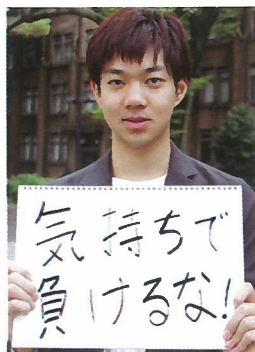 気持ちで
負けるな!